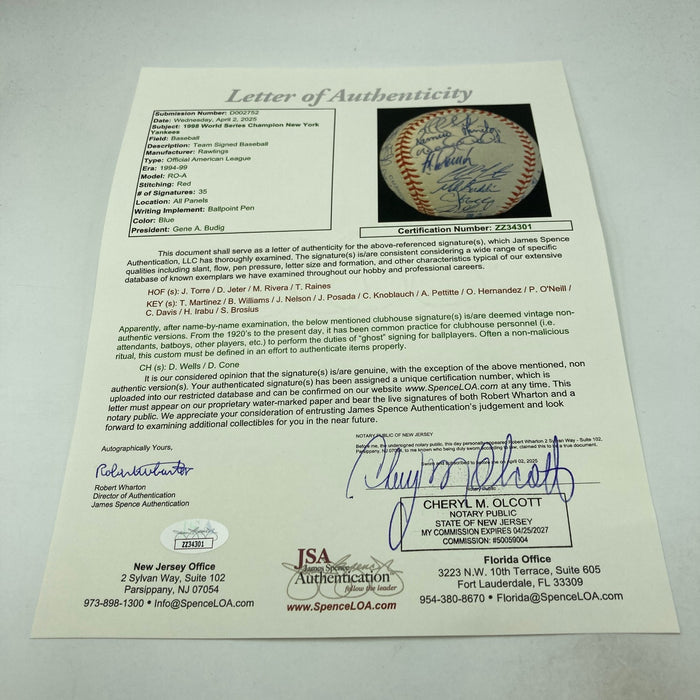 Letter of Authenticity
Submission Number: D002752
Date: Wednesday, April 2, 2025
Subject: 1998 World Series Champion New York
Yankees
Field: Baseball
Description: Team Signed Baseball
Manufacturer: Rawlings
Type: Official American League
Era: 1994-99
Model: RO-A
Stitching: Red
# of Signatures: 35
Location: All Panels
Writing Implement: Ballpoint Pen
Color: Blue
President: Gene A. Budig
Certification Number: ZZ34301
This document shall serve as a letter of authenticity for the above-referenced signature(s), which James Spence
Authentication, LLC has thoroughly examined. The signature(s) is/are consistent considering a wide range of specific
qualities including slant, flow, pen pressure, letter size and formation, and other characteristics typical of our extensive
database of known exemplars we have examined throughout our hobby and professional careers.
HOF (s): J. Torre / D. Jeter / M. Rivera / T. Raines
KEY (s): T. Martinez / B. Williams / J. Nelson / J. Posada / C. Knoblauch / A. Pettitte / O. Hernandez / P. O'Neill /
C. Davis / H. Irabu / S. Brosius
Apparently, after name-by-name examination, the below mentioned clubhouse signature(s) is/are deemed vintage non-
authentic versions. From the 1920's to the present day, it has been common practice for clubhouse personnel (i.e.
attendants, batboys, other players, etc.) to perform the duties of "ghost" signing for ballplayers. Often a non-malicious
ritual, this custom must be defined in an effort to authenticate items properly.
CH (s): D. Wells / D. Cone
It is our considered opinion that the signature(s) is/are genuine, with the exception of the above mentioned, non
authentic version(s). Your authenticated signature(s) has been assigned a unique certification number, which is
uploaded into our restricted database and can be confirmed on our website www.SpenceLOA.com at any time. This
letter must appear on our proprietary water-marked paper and bear the live signatures of both Robert Wharton and a
notary public. We appreciate your consideration of entrusting James Spence Authentication's judgement and look
forward to examining additional collectibles for you in the near future.
NOTARY PUBLIC OF NEW JERSEY
Before me, the undersigned notary public, this day personally appeared Robert Wharton 2 Sylvan Way - Suite 102,
Parsippany, NJ 07054, to me known, who being duly sworn according to law, claimed this to be a true document.
Sworn and subscribed to before me on April 02, 2025
Autographically Yours,
Robert Wharton
Cheryl M Olcott
Robert Wharton
Director of Authentication
James Spence Authentication
CHERYL M. OLCOTT
NOTARY PUBLIC
STATE OF NEW JERSEY
MY COMMISSION EXPIRES 04/25/2027
COMMISSION: #50059004
ZZ34301
New Jersey Office
2 Sylvan Way, Suite 102
Parsippany, NJ 07054
973-898-1300 • Info@SpenceLOA.com
JSA
James Spence
Authentication
follow the leader
www.SpenceLOA.com
Florida Office
3223 N.W. 10th Terrace, Suite 605
Fort Lauderdale, FL 33309
954-380-8670 • Florida@SpenceLOA.com